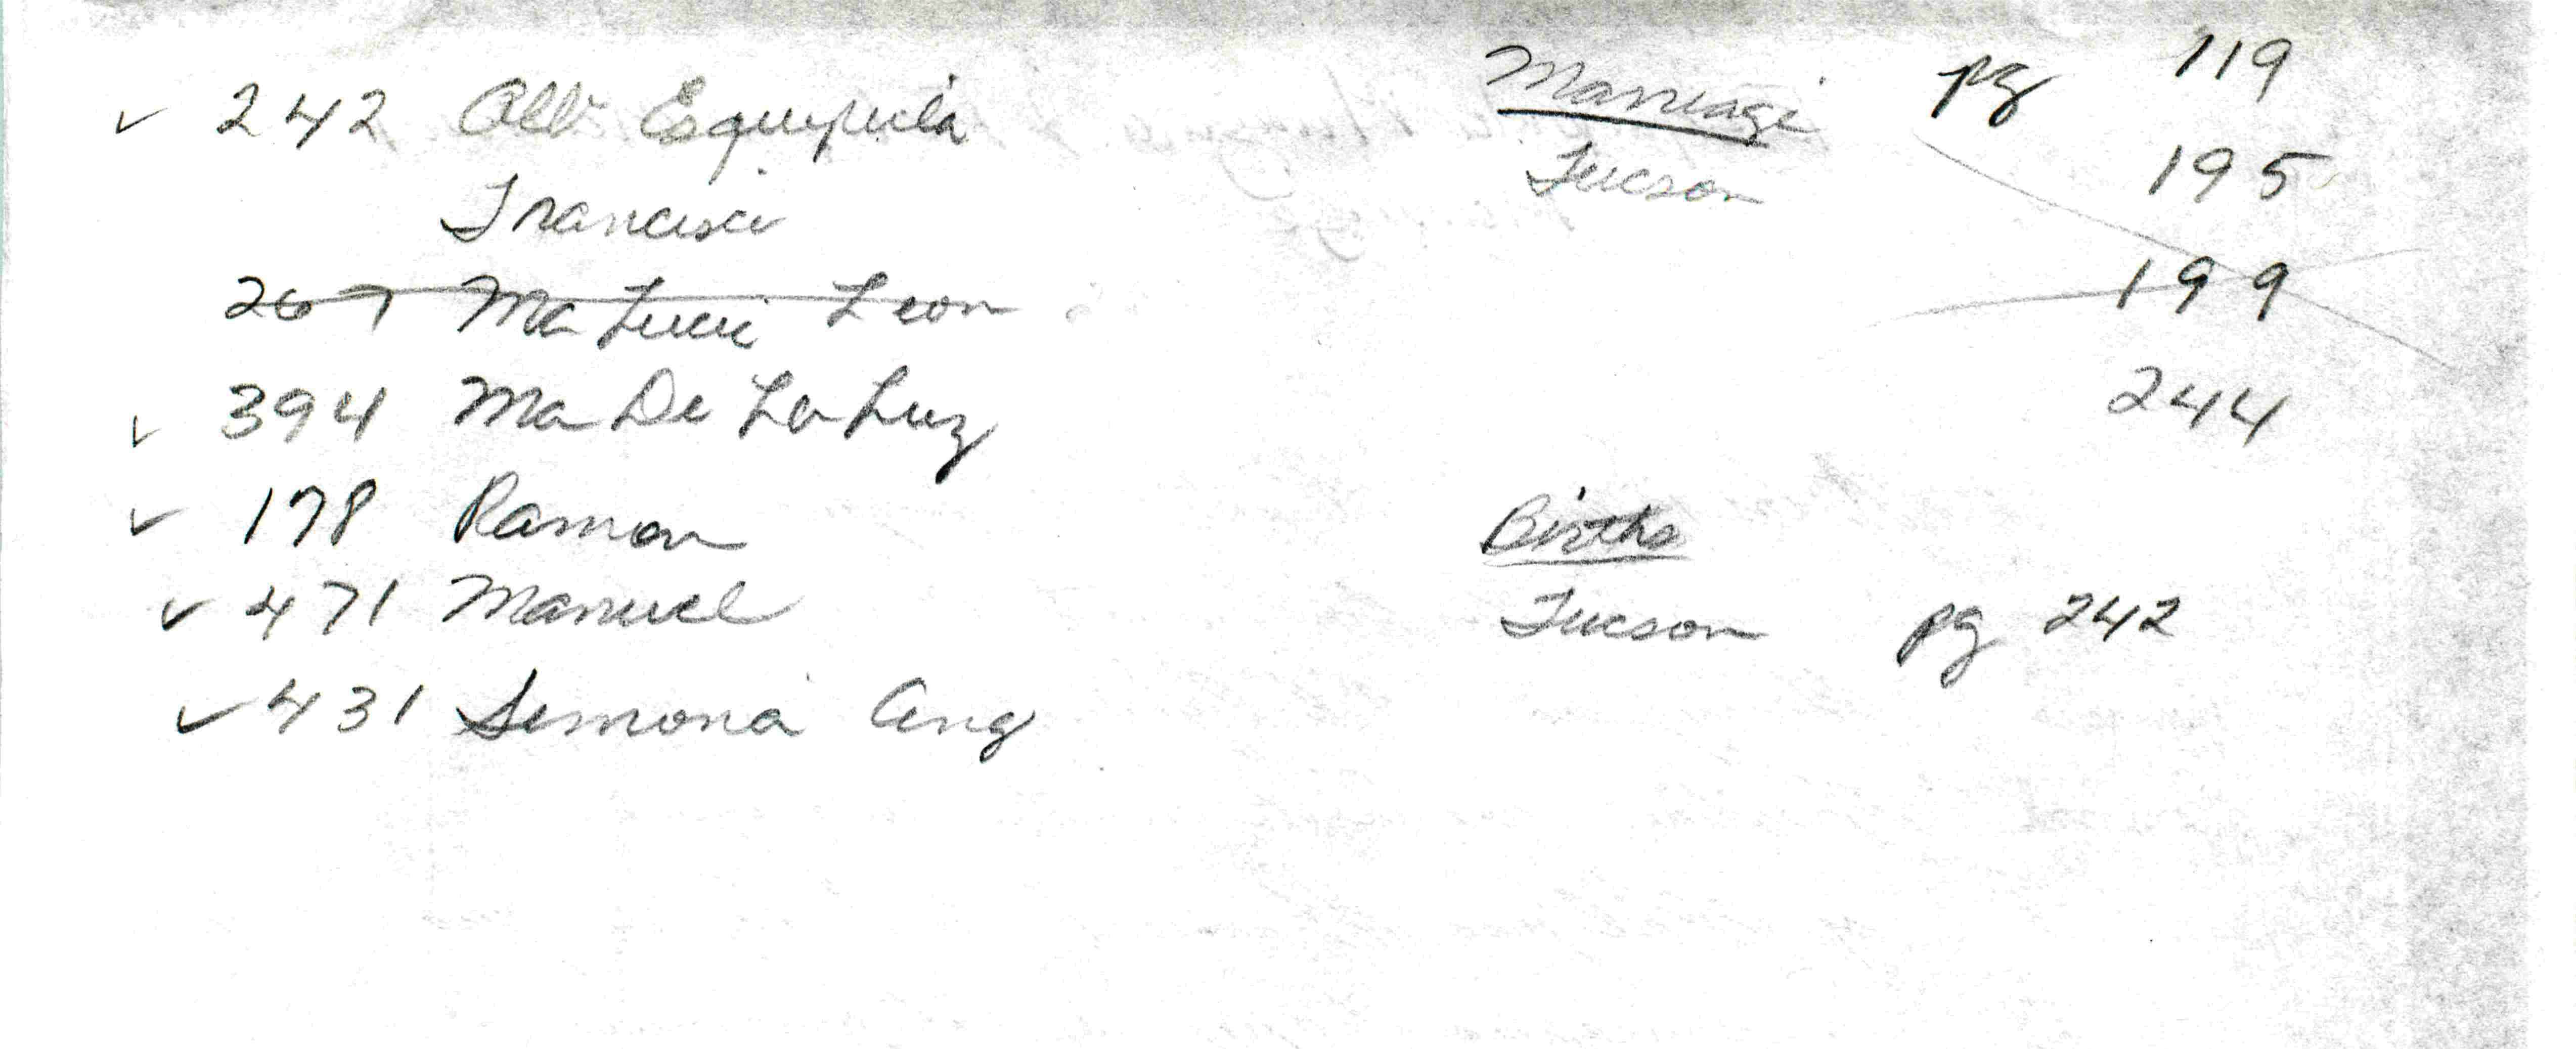 ✓ 242 Esquipula
Francisca
267 Ma Luci Leon
✓ 394 Ma De La Luz
✓ 178 Ramon
✓ 471 Manuel
✓ 431 Simona Ang
Marriage pg 119
Tucson 195
199
244
Births
Tucson pg 242